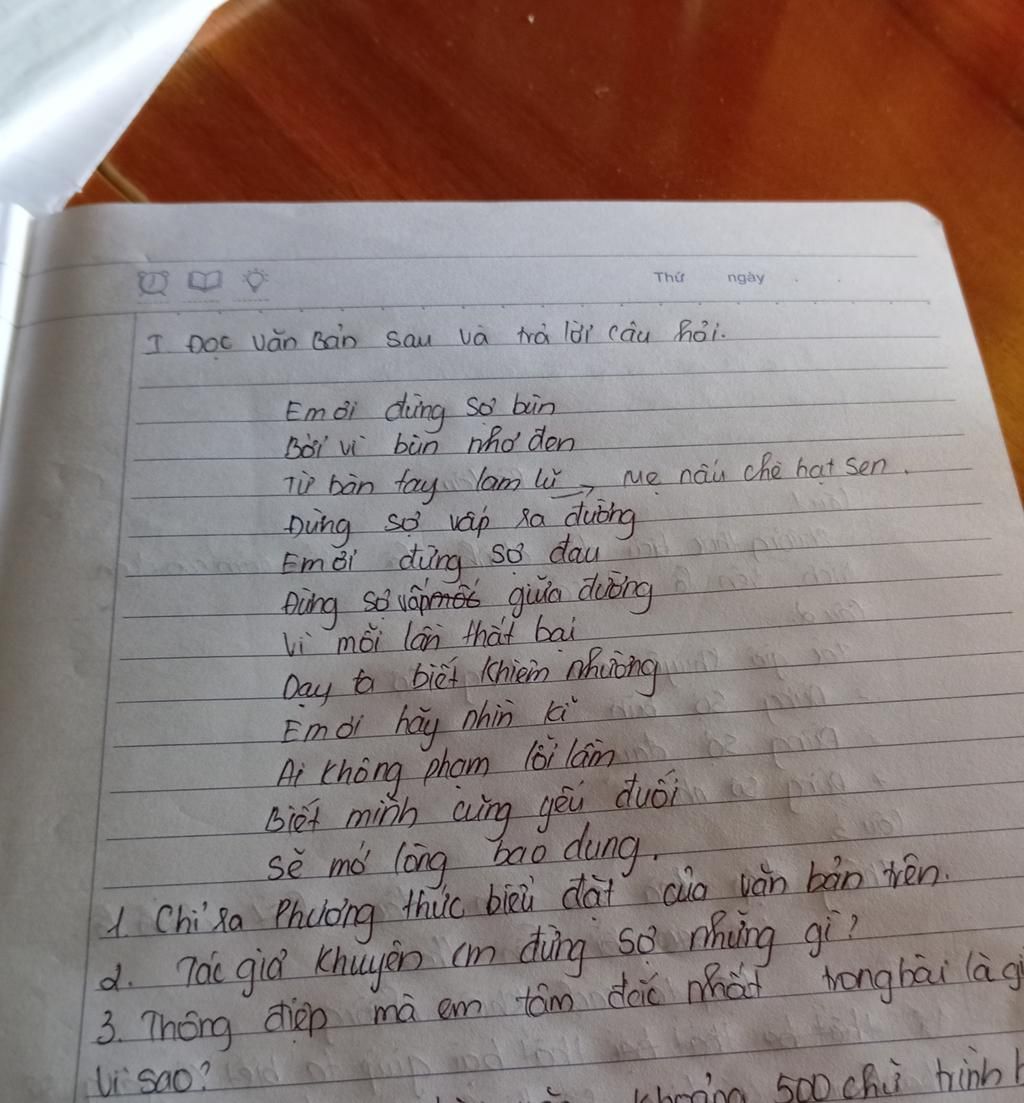 Thứ ngày
I Đọc văn bản sau và trả lời câu hỏi.
Em ơi đừng sợ bùn
Bởi vì bùn nhơ đen
Từ bàn tay lam lũ → Mẹ nấu chè hạt sen.
Đừng sợ vấp ra đường
Em ơi đừng sợ đau
Đừng sợ vấp giữa đường
Vì mỗi lần thất bại
Dạy ta biết khiêm nhường
Em ơi hãy nhìn kĩ
Ai không phạm lỗi lầm
Biết mình cũng yếu đuối
Sẽ mở lòng bao dung.
1. Chỉ ra Phương thức biểu đạt của văn bản trên.
2. Tác giả khuyên em đừng sợ những gì?
3. Thông điệp mà em tâm đắc nhất trong bài là gì
Vì sao?
khoảng 500 chữ trình